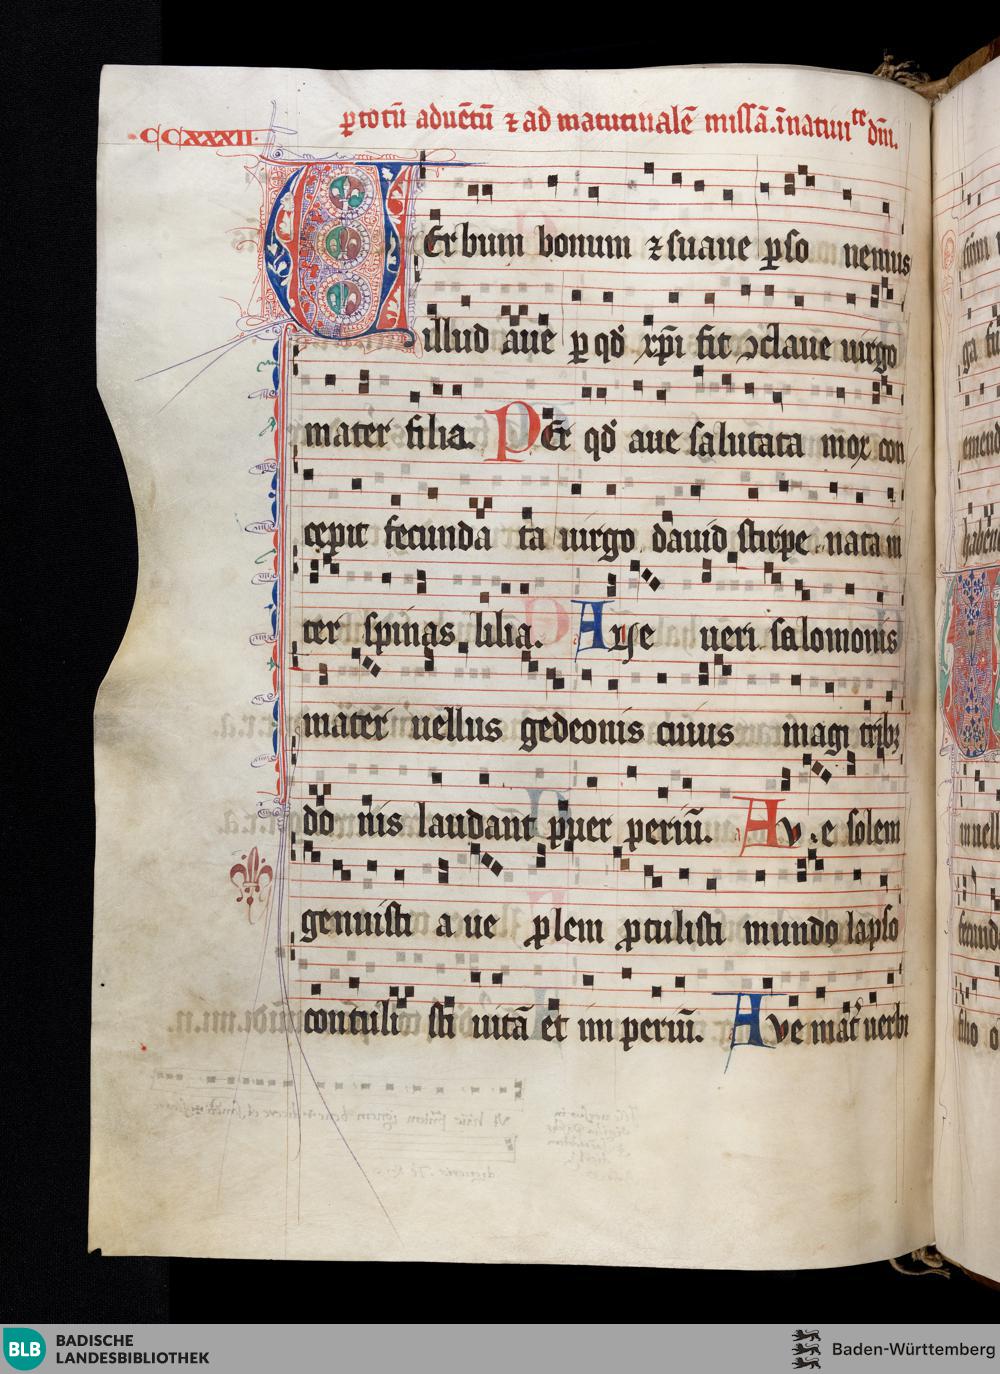 ·CCXXXII·
ꝑ totū aduētū ⁊ ad matutinalē missā. ī natiuitᵗᵉ dn̄i.
VErbum bonum ⁊ suaue ꝑso nemus
illud aue ꝑ qd̓ xp̄i fit ↄclaue uirgo
mater filia. PEr qd̓ aue salutata mox con
cepit fecunda ta uirgo dauid stirpe nata in
ter spinas lilia. Aue ueri salomonis
mater uellus gedeonis cuius magi tribꝫ
do nis laudant puer periū. Av e solem
genuisti a ue ꝓlem ꝓtulisti mundo lapso
contuli sti uitā et im periū. Ave mat̓ uerbi
BLB BADISCHE
LANDESBIBLIOTHEK
Baden-Württemberg